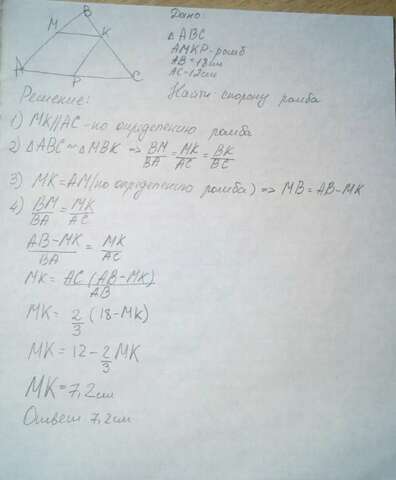 B
M
K
A
P
C
Дано:
△ABC
AMKP-ромб
AB=18см
AC=12см
Найти сторону ромба
Решение:
1) MK||AC -по определению ромба
2) △ABC ~ △MBK => BM/BA = MK/AC = BK/BC
3) MK=AM(по определению ромба) => MB=AB-MK
4) BM/BA = MK/AC
AB-MK/BA = MK/AC
MK= AC(AB-MK)/AB
MK= 2/3 (18-MK)
MK=12-2/3 MK
MK=7,2см
Ответ 7,2см